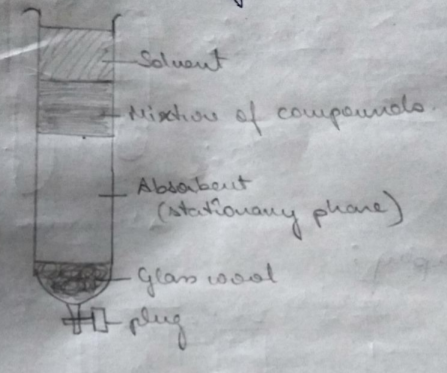 Solvent
Mixture of compounds
Absorbent
(stationary phase)
Glass wool
plug